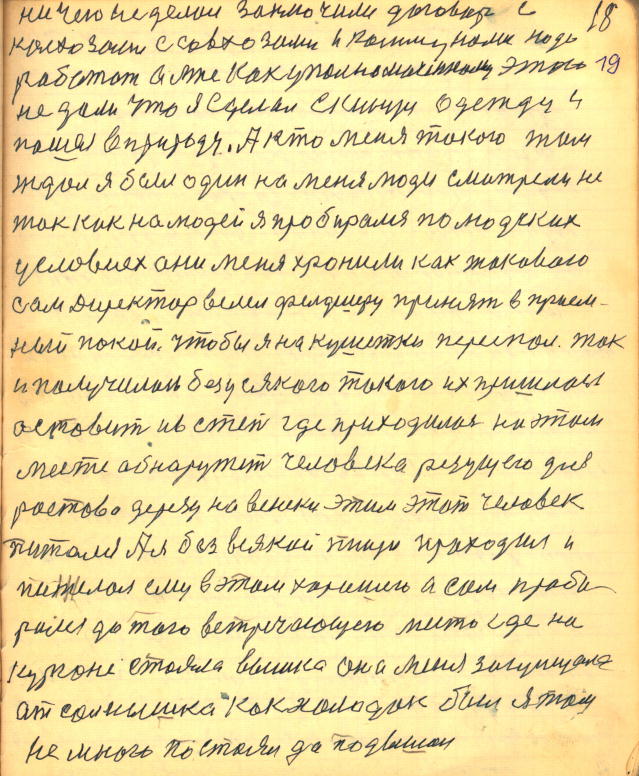 ни чего не делой заключили договор с 18
колхозами с совхозами и коммунами подь
работат а мне как уполномоченому этого 19
не дали что я сделал скинул одежду и
пошел в природу. А кто меня такого там
ждал я был один на меня люди смотрели не
так как на людей я пробирался по людских
условиех они меня хронили как такового
сам директор велел фелдшеру принят в прием-
ный покой. чтобы я на кушетки переспал. так
и получилось без усякого такого их пришлось
оставит и в степ где приходилося на этом
месте обнаружет человека режущего для
ростова дерезу на веники этим этот человек
питался А я без всякой пищи проходил и
пожелал ему в этом хорошого а сам проби-
рался до того встречающего места где на
кургоне стояла вышка она меня защищала
от солнышка как холодок был я там
не много постоял да подышал